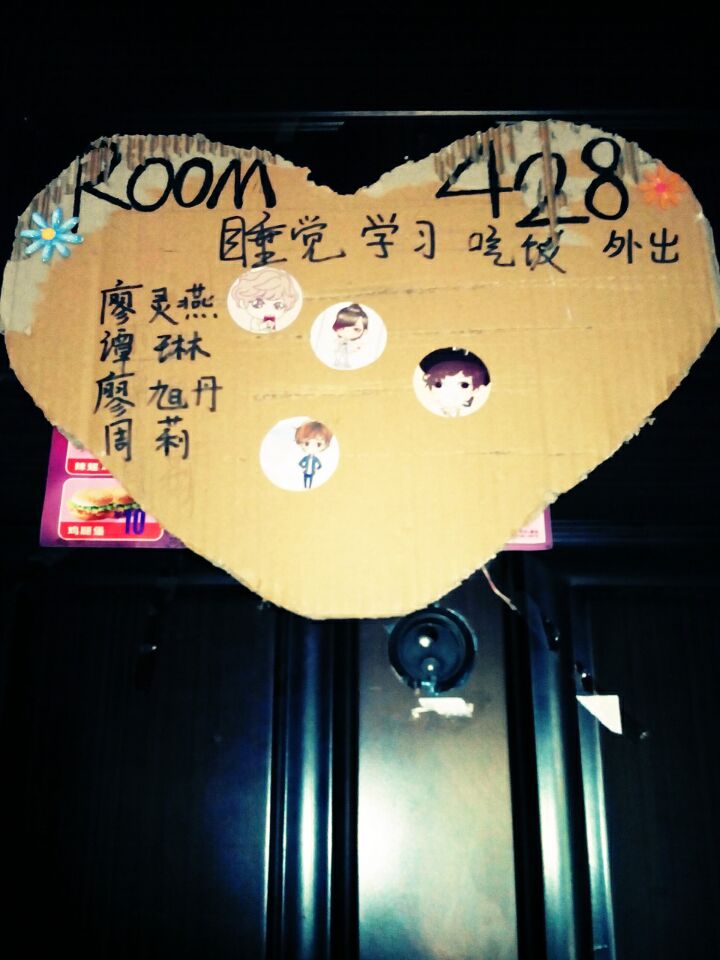 ROOM 428
睡觉 学习 吃饭 外出
廖灵燕
谭琳
廖旭丹
周莉
鸡腿堡 10